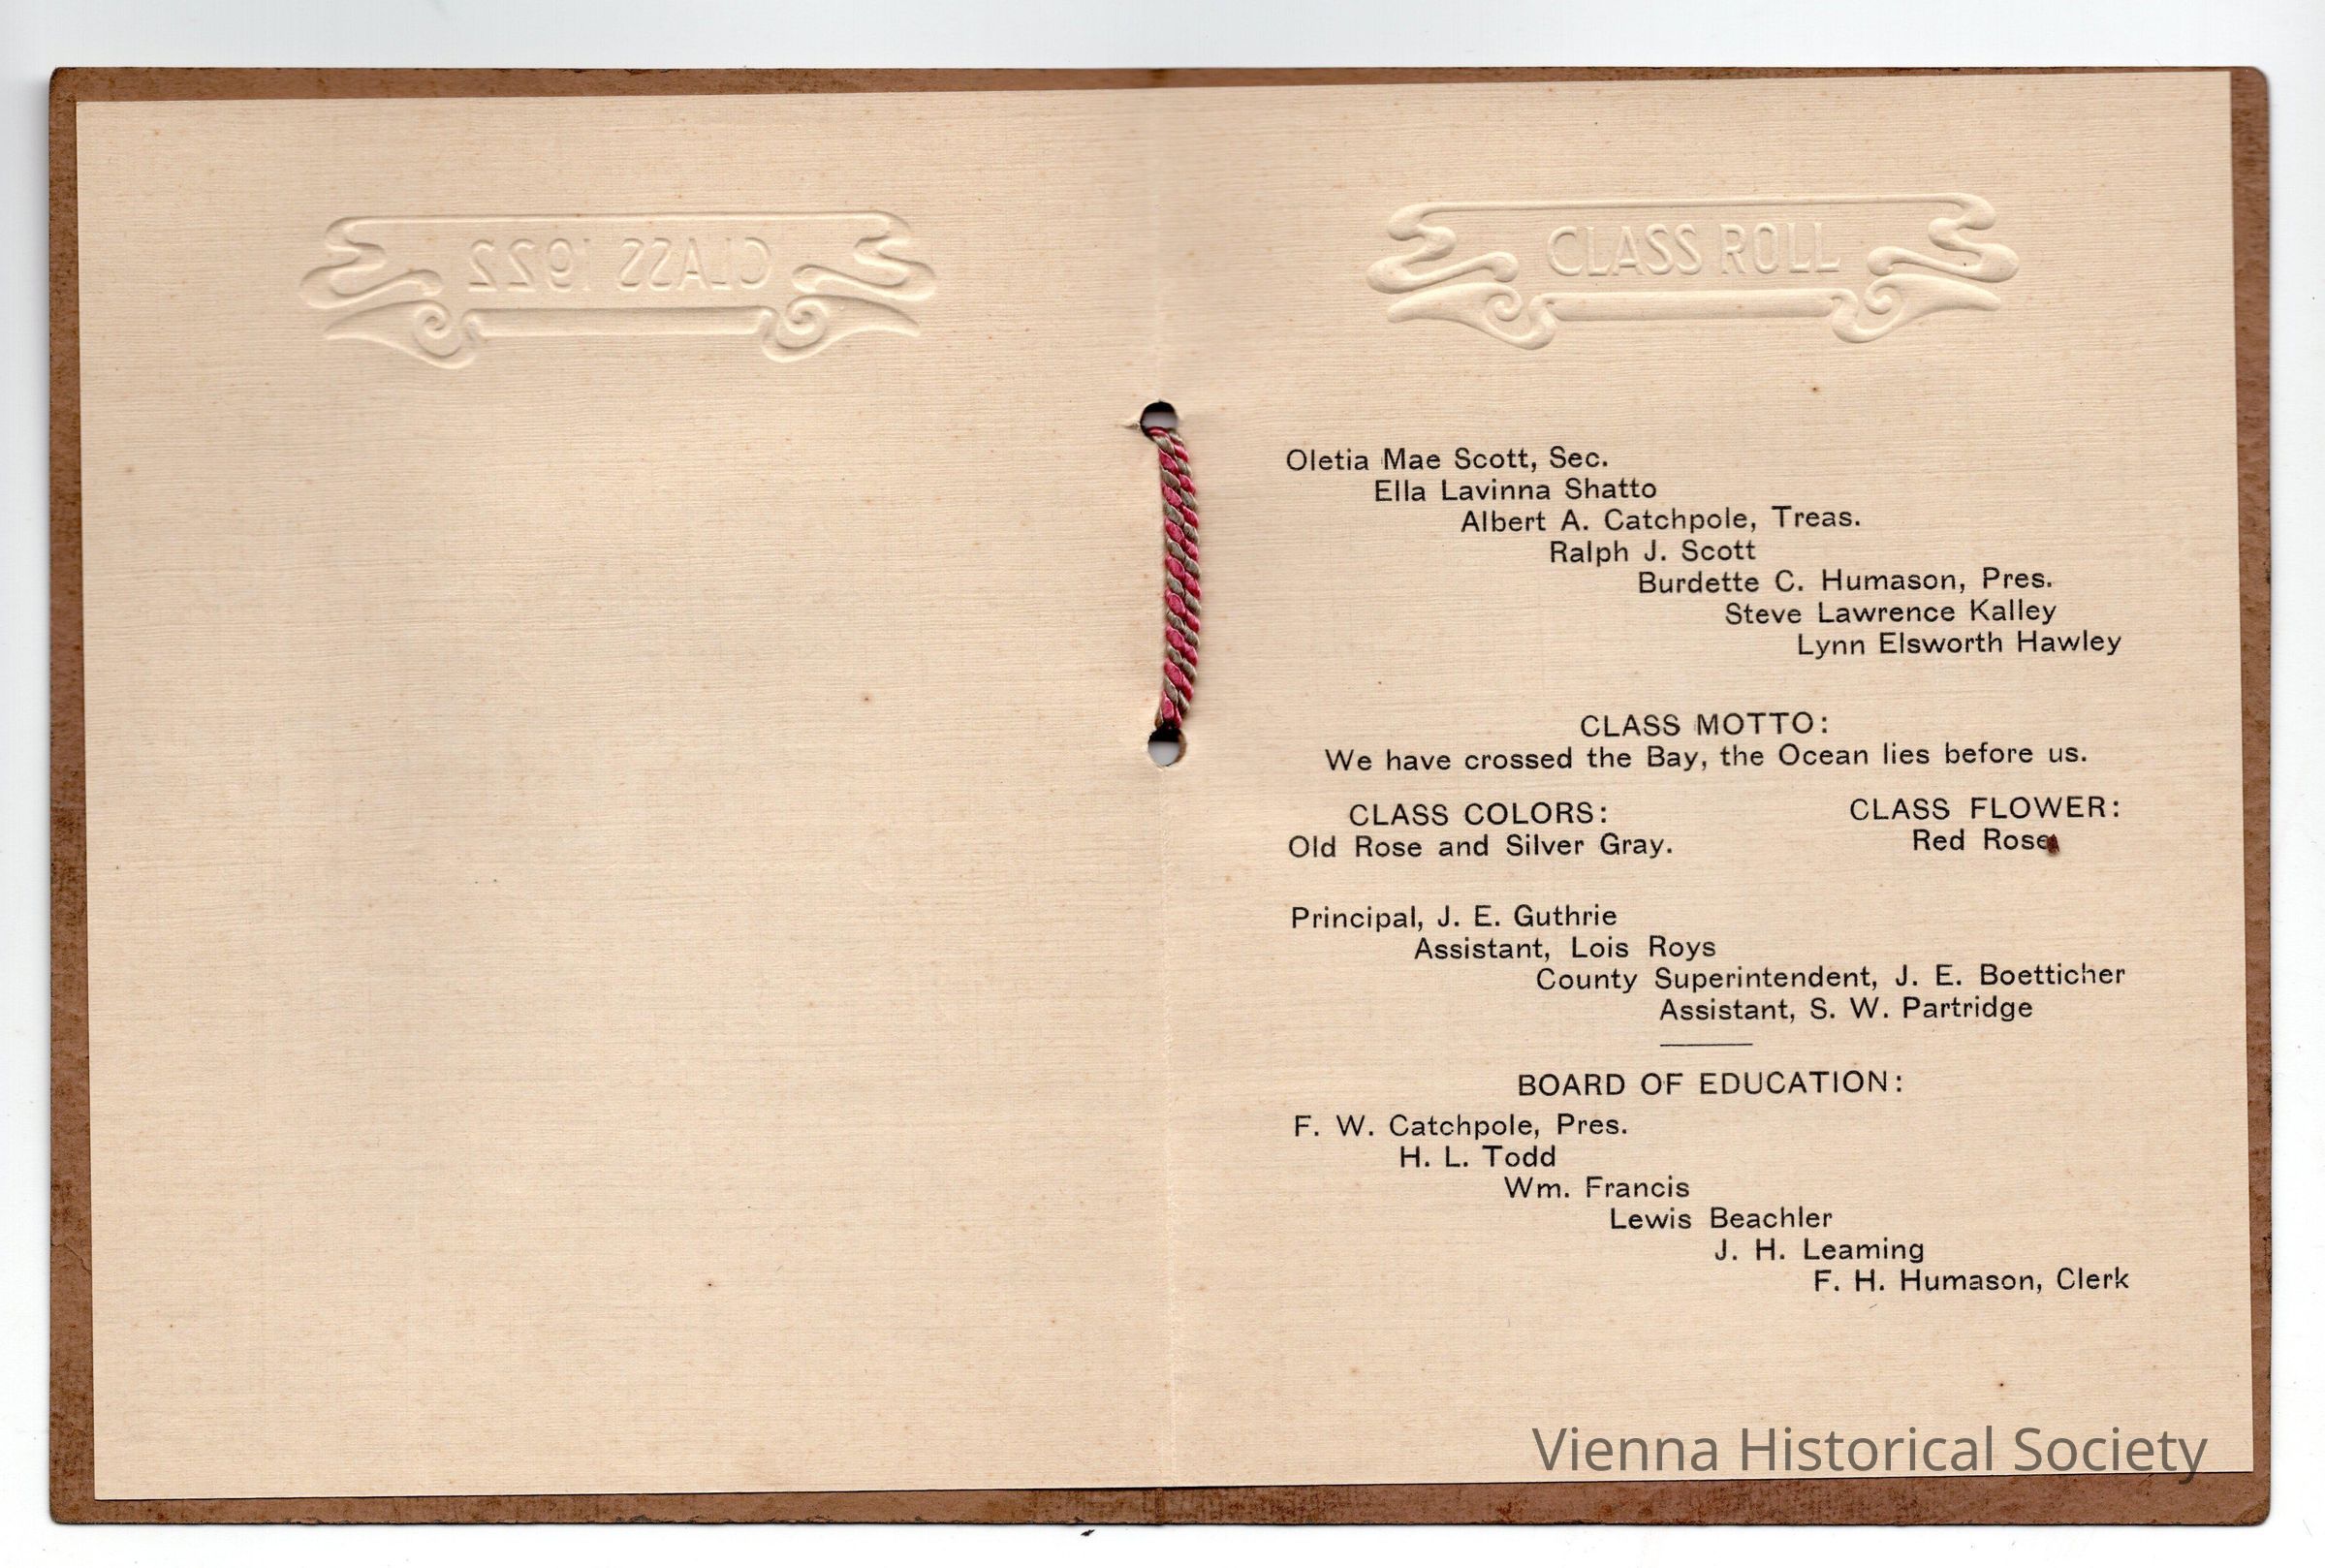 CLASS 1922
CLASS ROLL
Oletia Mae Scott, Sec.
Ella Lavinna Shatto
Albert A. Catchpole, Treas.
Ralph J. Scott
Burdette C. Humason, Pres.
Steve Lawrence Kalley
Lynn Elsworth Hawley
CLASS MOTTO:
We have crossed the Bay, the Ocean lies before us.
CLASS COLORS:
Old Rose and Silver Gray.
CLASS FLOWER:
Red Rose
Principal, J. E. Guthrie
Assistant, Lois Roys
County Superintendent, J. E. Boetticher
Assistant, S. W. Partridge
BOARD OF EDUCATION:
F. W. Catchpole, Pres.
H. L. Todd
Wm. Francis
Lewis Beachler
J. H. Leaming
F. H. Humason, Clerk
Vienna Historical Society